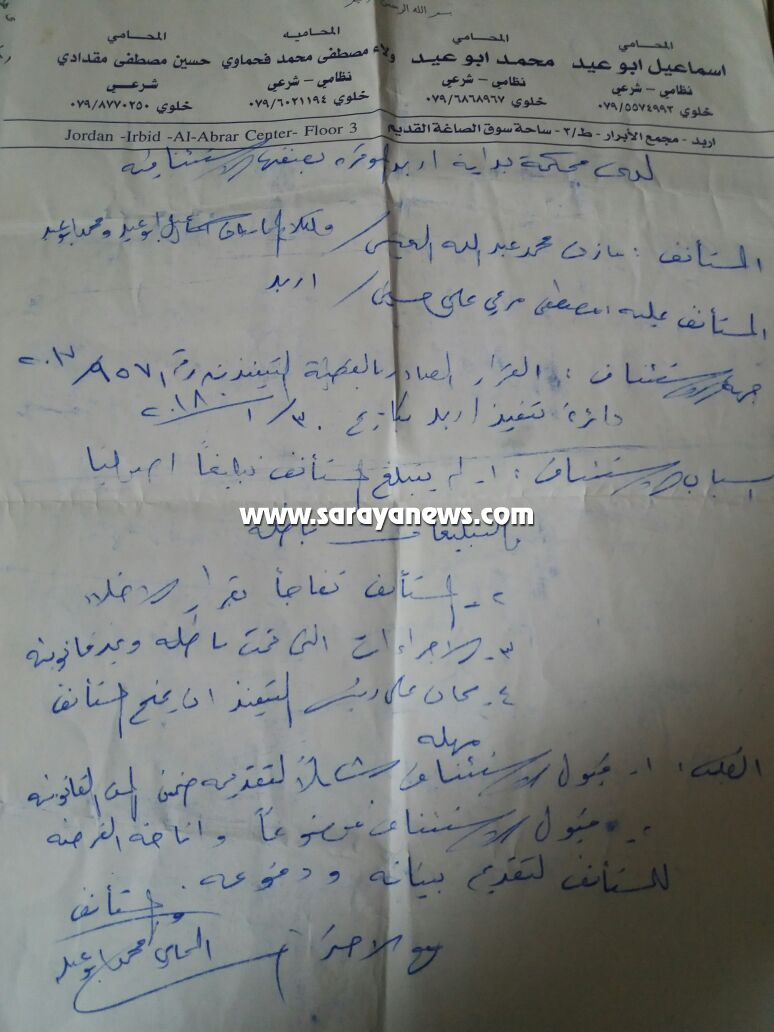 بسم الله الرحمن
المحامي المحامي المحاميه المحامي
اسماعيل ابو عيد محمد ابو عيد ولاء مصطفى محمد فحماوي حسين مصطفى مقدادي
نظامي - شرعي نظامي - شرعي نظامي - شرعي شرعي
خلوي ٠٧٩/٥٥٧٤٩٩٢ خلوي ٠٧٩/٦٨٦٨٩٦٧ خلوي ٠٧٩/٦٠٢١١٩٤ خلوي ٠٧٩/٨٧٧٠٢٥٠
اربد - مجمع الأبرار - ط/٣ - ساحة سوق الصاغة القديم Jordan -Irbid -Al-Abrar Center- Floor 3
لدى محكمة بداية اربد الموقره بصفتها الاستئنافيه
المستأنف : مازن محمد عبد الله / وكلاؤه المحاميان اسماعيل ابو عيد ومحمد ابو عيد
المستأنف عليه / مصطفى مرعي علي / اربد
جهة الاستئناف : القرار الصادر بالقضية التنفيذيه رقم ٩٥٧١/٢٠١٣
دائرة تنفيذ اربد بتاريخ ٣٠/١/٢٠١٨
اسباب الاستئناف : ١- لم يتبلغ المستأنف تبليغاً اصوليا
والتبليغات باطله
www.sarayanews.com
٢- المستأنف تفاجأ بقرار الاخلاء
٣- الاجراءات التي تمت باطله وغير قانونيه
٤- كان على رئيس التنفيذ ان يمنح المستأنف
مهله
الطلب : ١- قبول الاستئناف شكلاً لتقديمه ضمن المده القانونيه
٢- قبول الاستئناف موضوعاً واتاحة الفرصه
للمستأنف لتقديم بيناته ودفوعه .
مع الاحترام وكيل المستأنف
المحامي محمد ابو عيد